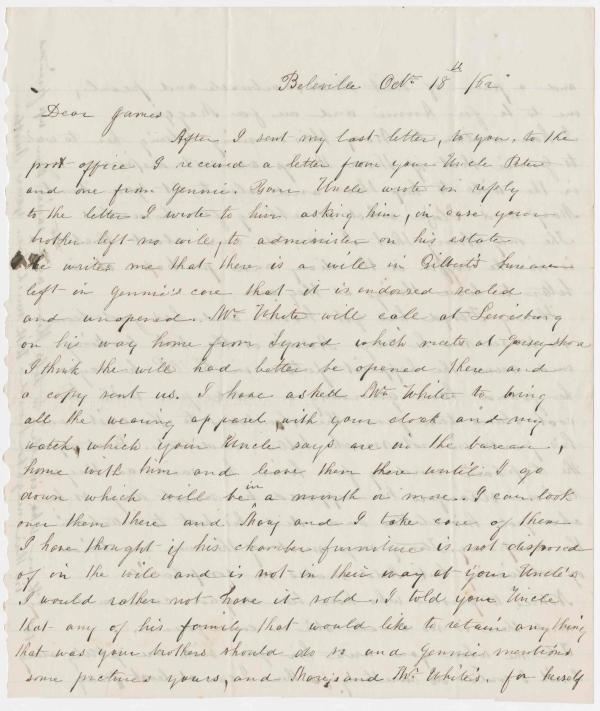 Beleville Octr 18th /62
Dear James
After I sent my last letter, to you, to the
post office I received a letter from your Uncle Peter
and one from Jennie. Your Uncle wrote in reply
to the letter I wrote to him asking him, in case your
brother left no will, to administer on his estate
He writes me that there is a will in Gilbert's bureau
left in Jennie's care that it is endorsed sealed
and unopened. Mr White will call at Lewisburg
on his way home from Synod which meets at Jersey shore
I think the will had better be opened there and
a copy sent us. I have asked Mr White to bring
all the wearing apparel with your cloak and my
watch, which your Uncle says are in the bureau,
home with him and leave them there until I go
down which will be in a month or more. I can look
over them there and and I take care of them
I have thought if his chamber furniture is not disposed
of in the will and is not in their way at your Uncle's
I would rather not have it sold. I told your Uncle
that any of his family that would like to retain any thing
that was your brothers should do so and Jennie mentions
some pictures yours, and and Mr White's. for herself